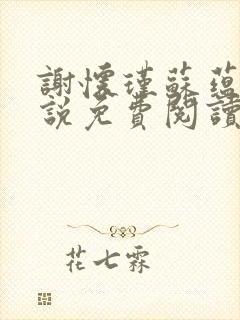 謝懷瑾蘇蘊
說免費閱讀
花七霖